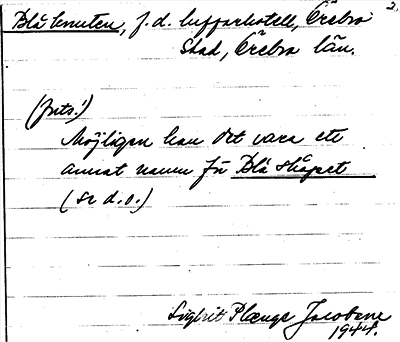 Blå knuten, f.d. luffarhotell, Örebro
2.
Stad, Örebro län.
(forts.)
Möjligen kan det vara ett
annat namn för Blå skåpet
(se d.o.)
Sigbrit Plænge Jacobson
1944.